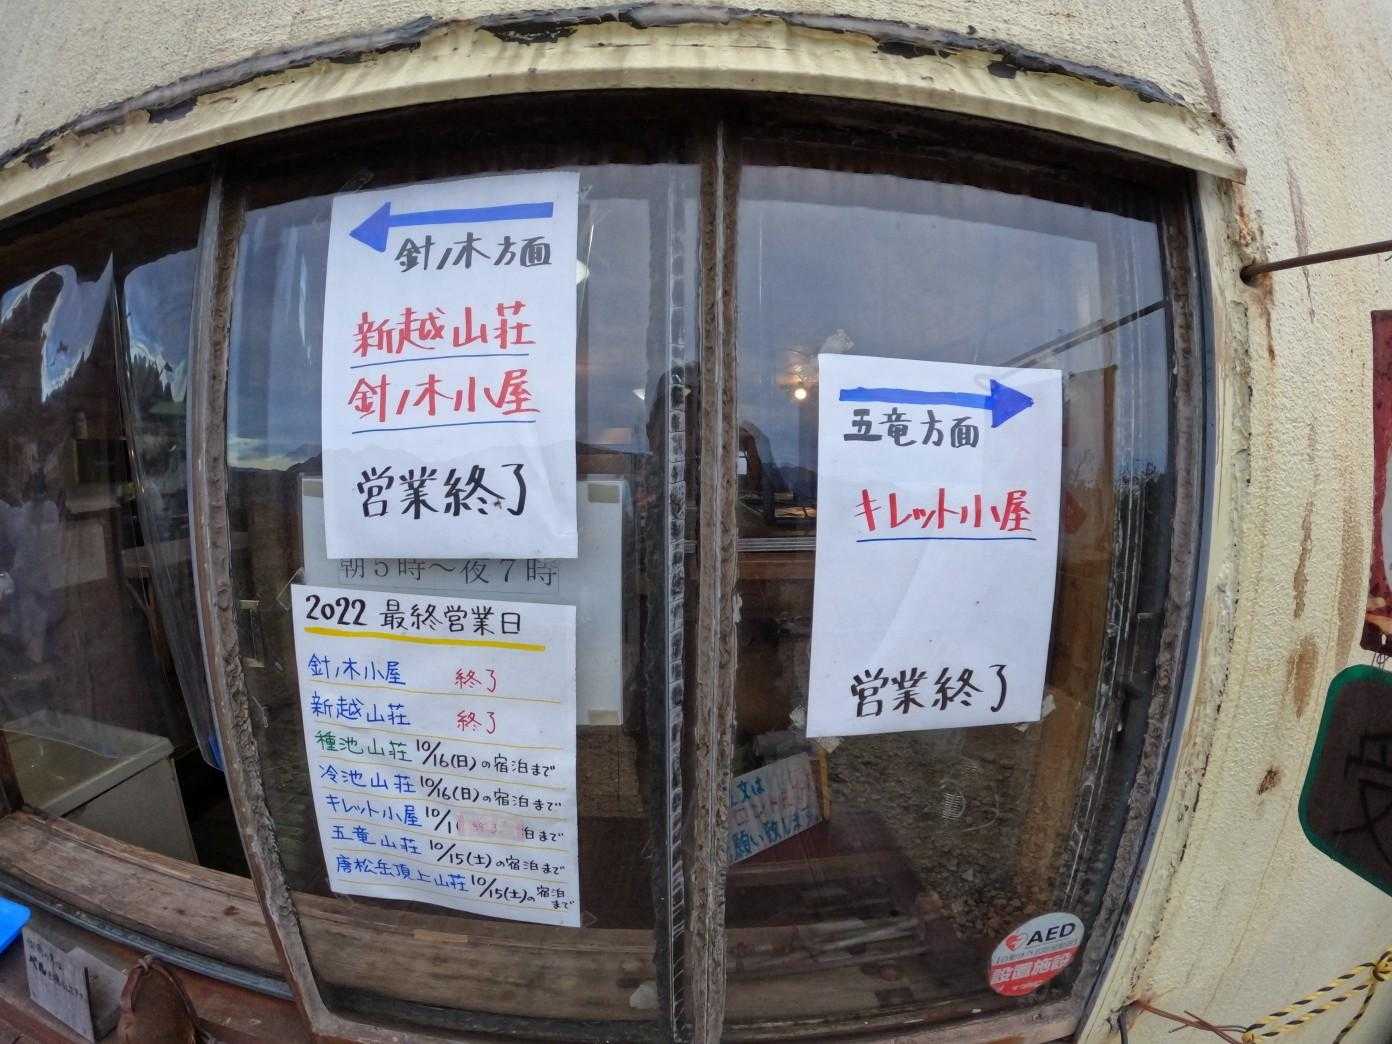 針ノ木方面
新越山荘
針ノ木小屋
営業終了
朝5時～夜7時
2022 最終営業日
針ノ木小屋 終了
新越山荘 終了
種池山荘 10/16(日)の宿泊まで
冷池山荘 10/16(日)の宿泊まで
キレット小屋 10/1 泊まで
五竜山荘 10/15(土)の宿泊まで
唐松岳頂上山荘 10/15(土)の宿泊まで
五竜方面
キレット小屋
営業終了
文は
願い致します
AED
設置施設